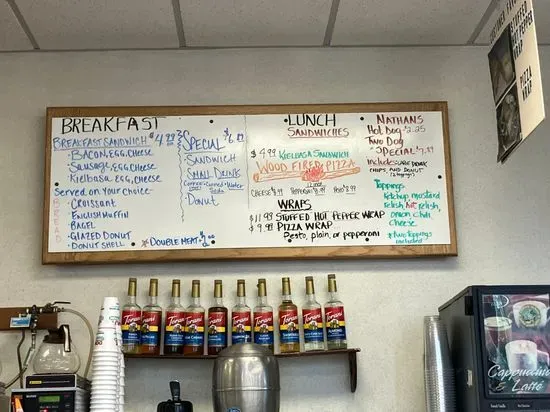 BREAKFAST
BREAKFAST SANDWICH $4.99
• BACON, EGG, CHEESE
• SAUSAGE, EGG, CHEESE
• KIELBASA, EGG, CHEESE
SERVED ON YOUR CHOICE
BREAD
• CROISSANT
• ENGLISH MUFFIN
• BAGEL
• GLAZED DONUT
• DONUT SHELL
SPECIAL
SANDWICH
SMALL DRINK
DONUT
DOUBLE MEAT
LUNCH
SANDWICHES
$4.99 KIELBASA SANDWICH
WOOD FIRED PIZZA
CHEESE
WRAPS
$11.99 STUFFED HOT PEPPER WRAP
$9.99 PIZZA WRAP
Pesto, plain, or pepperoni
NATHANS
HOT DOG $2.25
TWO DOG
"SPECIAL"
INCLUDES:
CHIPS, AND DONUT
Toppings
Ketchup mustard
relish, hot relish,
onion chili
Cheese
* two toppings
included
PEPPER
WRAP
PIZZA
WRAP
Torani
Torani
Torani
Torani
Torani
Torani
Torani
Torani
Torani
Torani
Cappuccino
& Latté